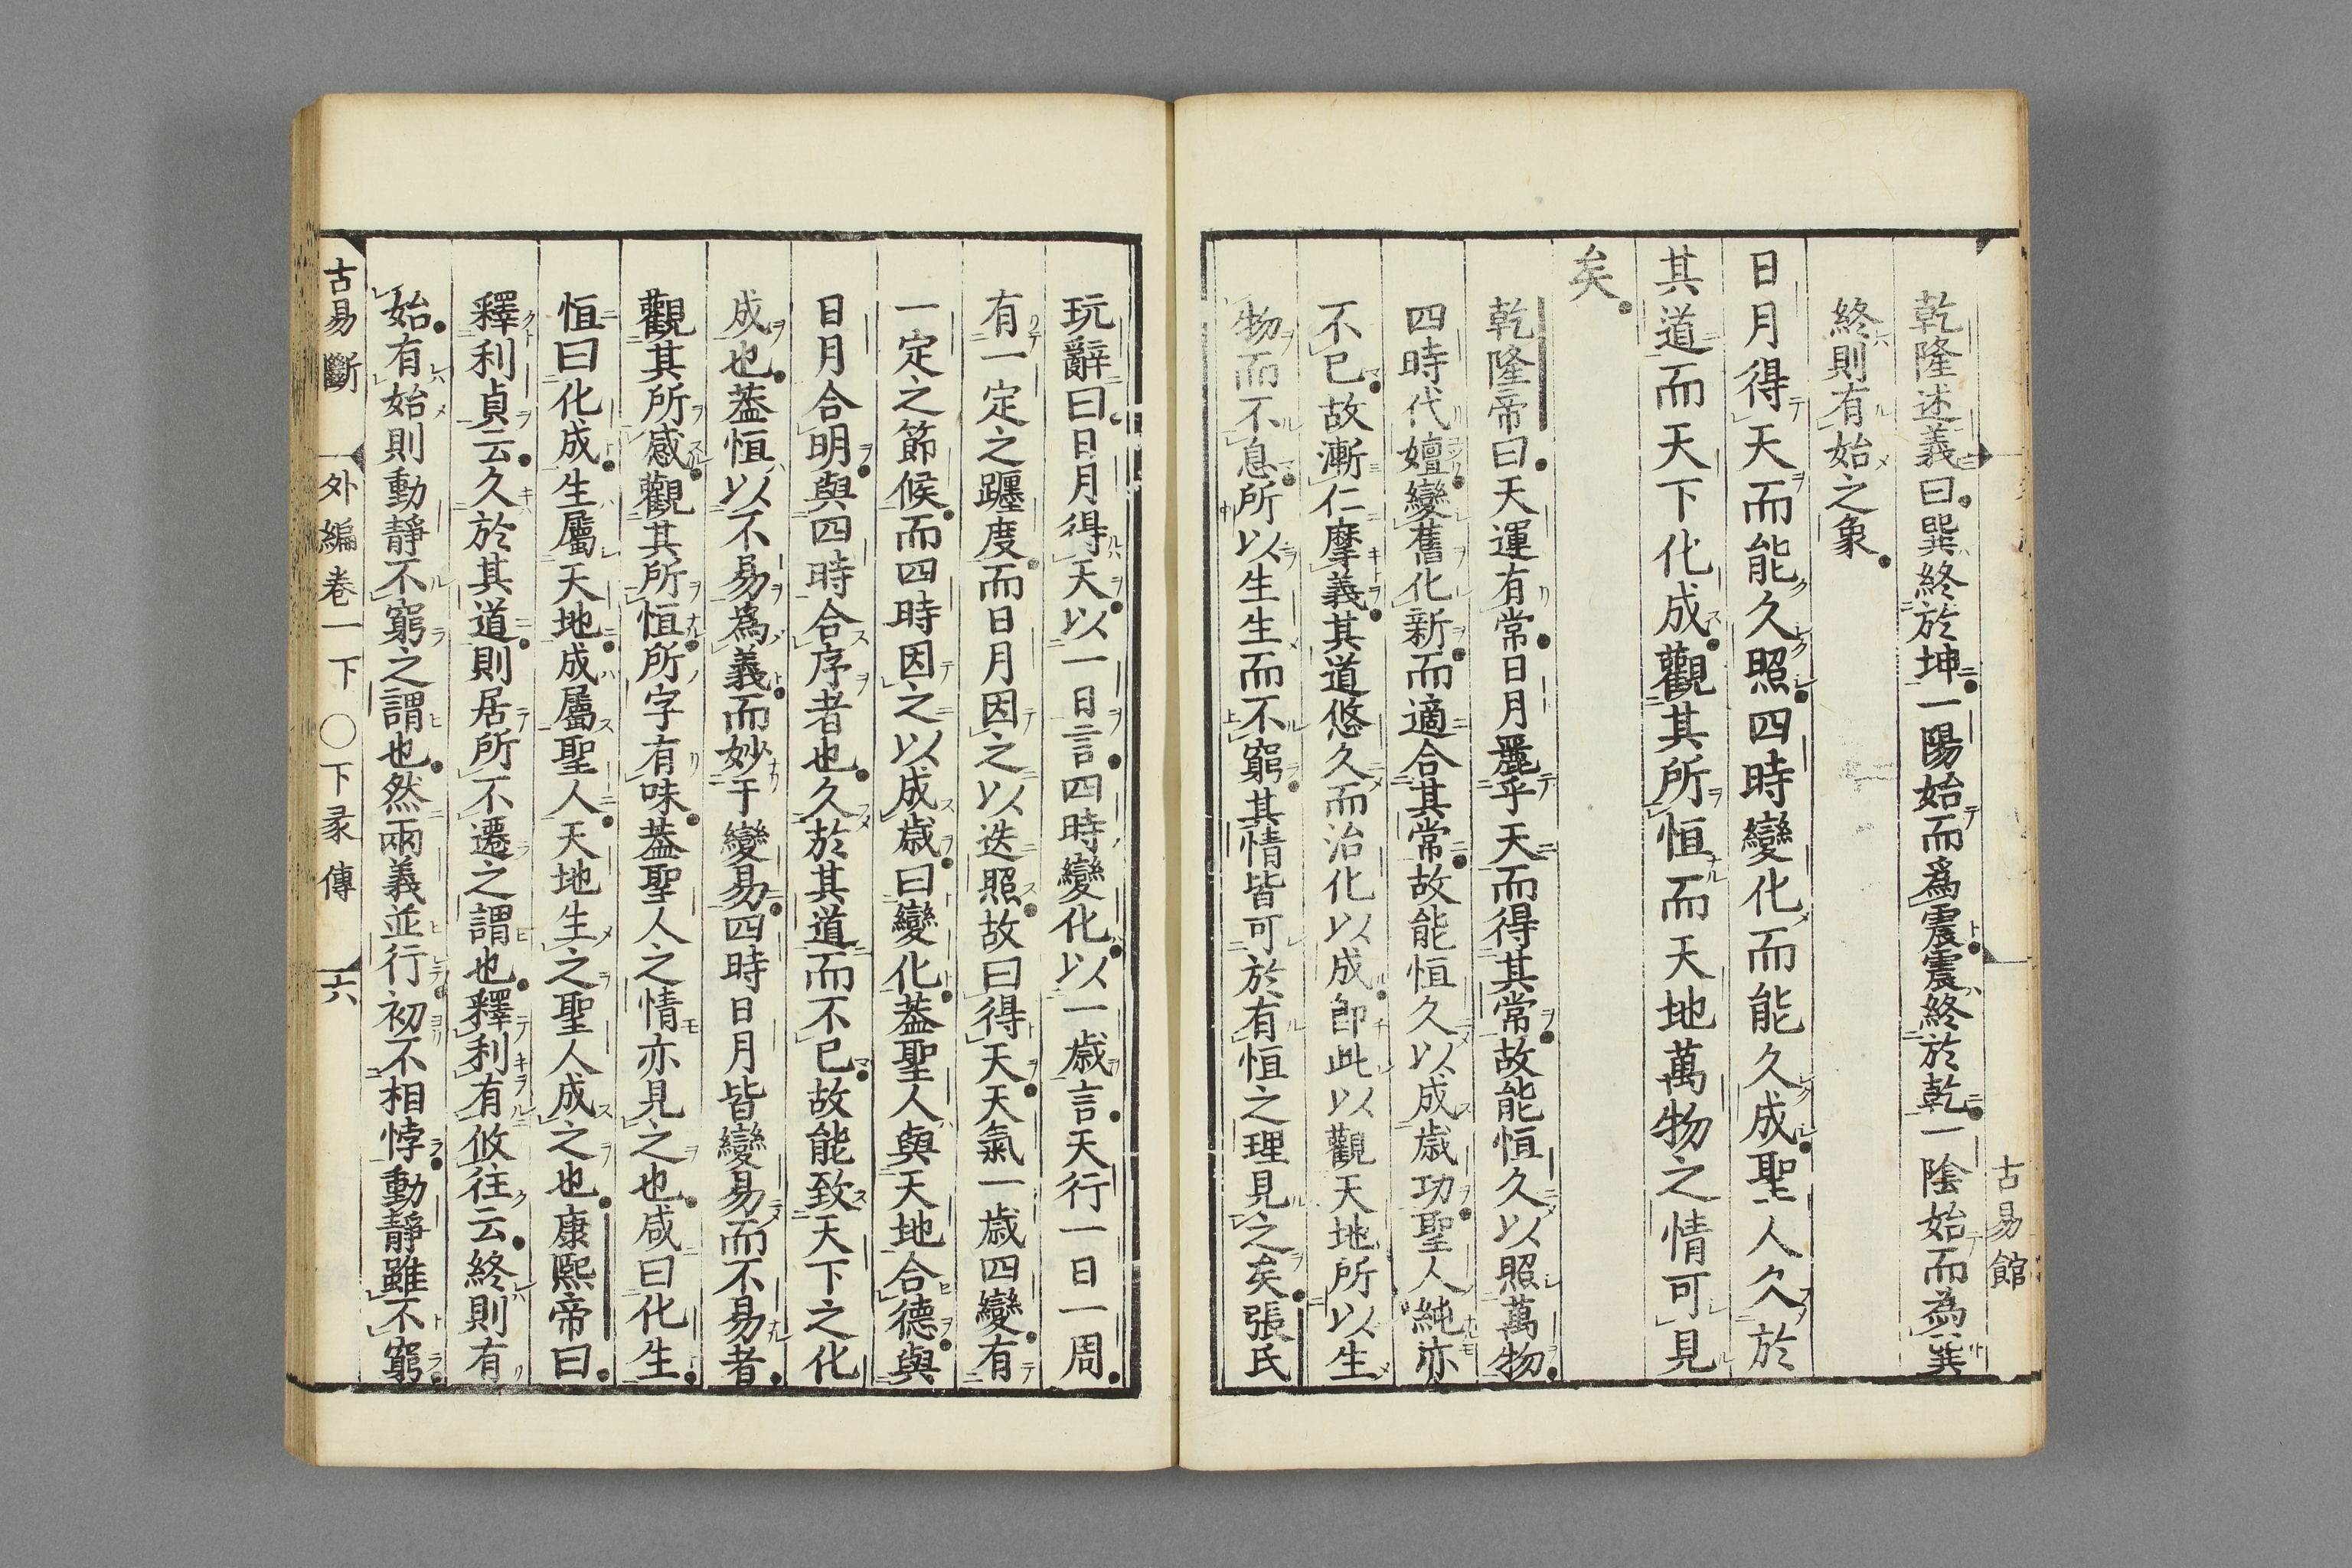 乾隆述義曰巽終於坤一陽始而爲震震終於乾一陰始而為巽
終則有始之象
日月得天而能久照四時變化而能久成聖人久於
其道而天下化成觀其所恒而天地萬物之情可見
矣
乾隆帝曰天運有常日月麗乎天而得其常故能恒久以照萬物
四時代嬗變舊化新而適合其常故能恒久以成歳功聖人純亦
不已故漸仁摩義其道悠久而治化以成卽此以觀天地所以生
物而不息所以生生而不窮其情皆可於有恒之理見之矣張氏
古易館
玩辭曰日月得天以一日言四時變化以一歳言天行一日一周
有一定之躔度而日月因之以迭照故曰得天天氣一歳四變有
一定之節候而四時因之以成歳曰變化葢聖人與天地合德與
日月合明與四時合序者也久於其道而不已故能致天下之化
成也葢恒以不易爲義而妙于變易四時日月皆變易而不易者
觀其所感觀其所恒所字有味葢聖人之情亦見之也咸曰化生
恒曰化成生屬天地成屬聖人天地生之聖人成之也康熙帝曰
釋利貞云久於其道則居所不遷之謂也釋利有攸往云終則有
始有始則動靜不窮之謂也然兩義並行初不相悖動靜雖不窮
古易斷 外編卷一下 〇下彖傳 六